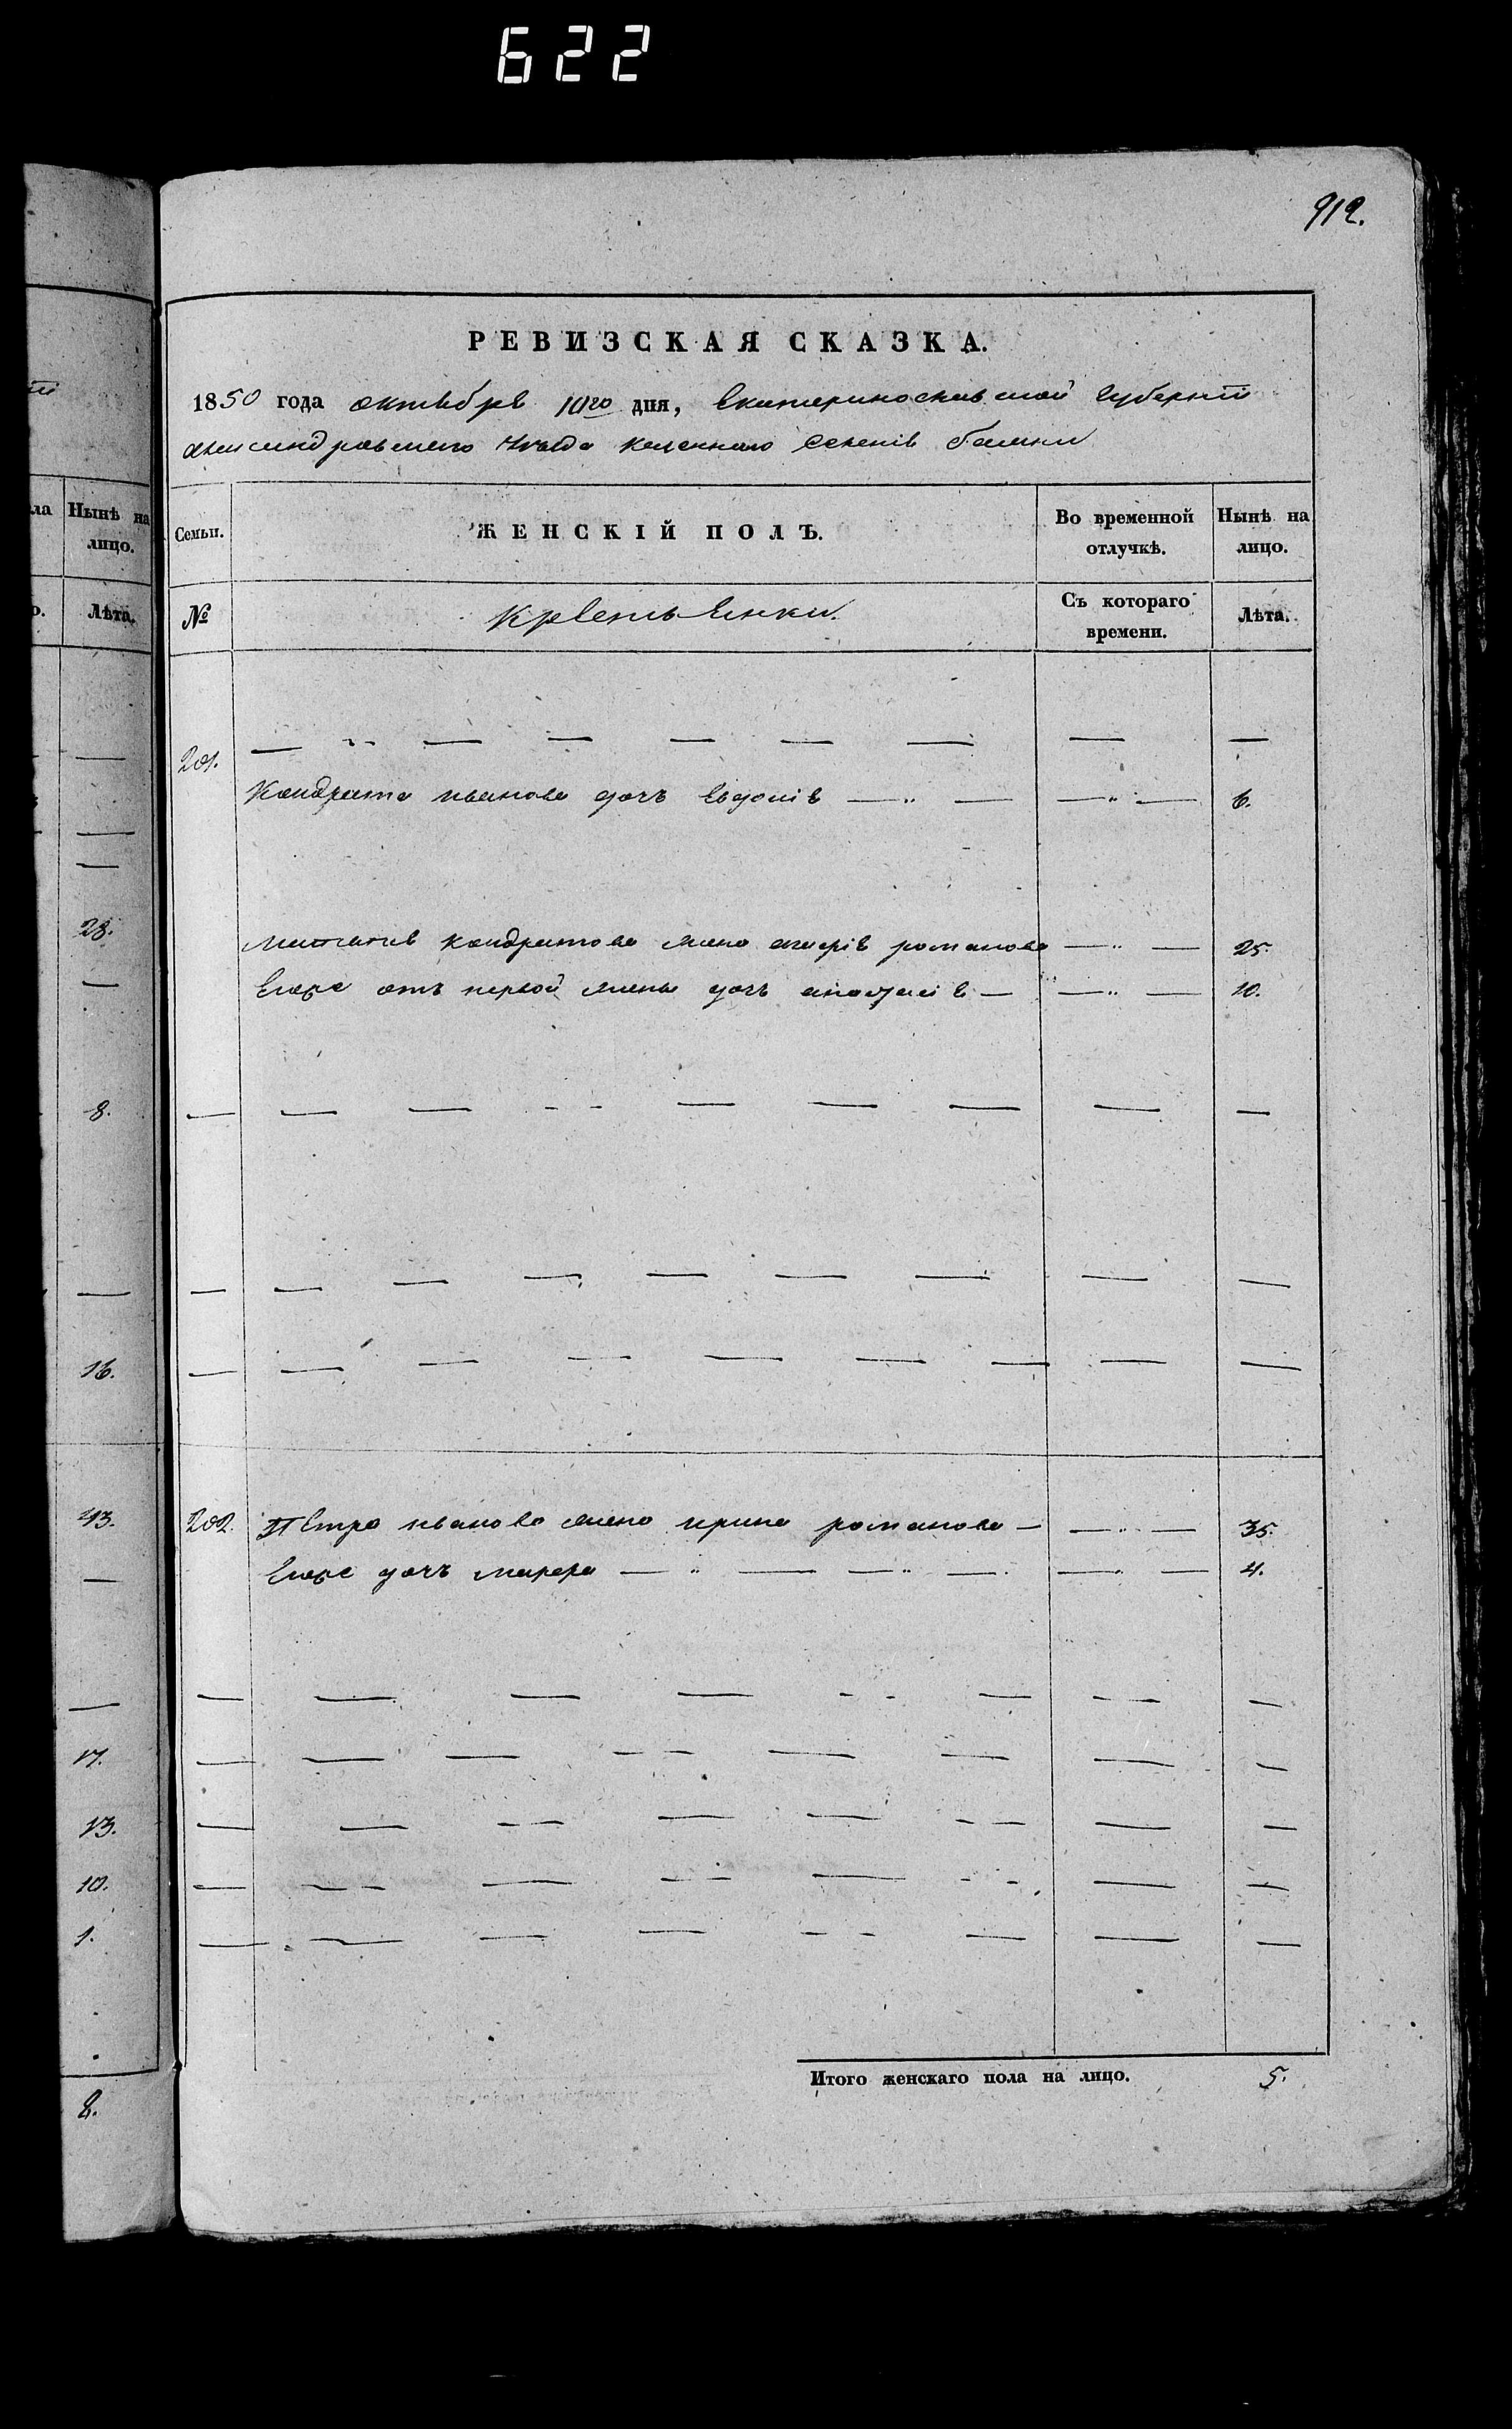 622
912.
РЕВИЗСКАЯ СКАЗКА.
1850 года октября 10го дня, Екатеринославской Губернии
Александровского уезда казенного селения балки
Семьи. ЖЕНСКІЙ ПОЛЪ. Во временной отлучкѣ. Нынѣ на лицо.
№ Крестьянки. Съ котораго времени. Лѣта.
201. — — — — — — — —
Кондрата иванова дочъ Евдокия — — — 6.
кондратова жена романова — — — 25.
Егоже отъ первой жены дочъ анастасия — — — 10.
— — — — — — — —
— — — — — — — —
— — — — — — — —
202. Петра иванова жена ирина романова — — — 35.
Егоже дочъ — — — — — — 4.
— — — — — — — —
— — — — — — — —
— — — — — — — —
— — — — — — — —
— — — — — — — —
Итого женскаго пола на лицо. 5.
ла Нынѣ на лицо.
Лѣта.
—
—
—
28.
—
8.
—
16.
43.
—
—
17.
13.
10.
1.
8.